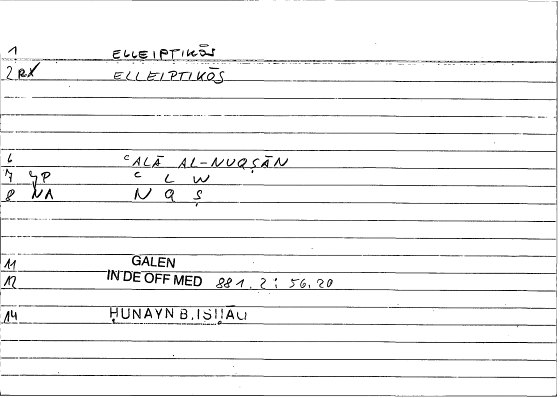 1 ELLEIPTIKŌS
2 RX ELLEIPTIKŌS
6 ᶜALĀ AL-NUQṢĀN
7 YP ᶜ L W
8 NA N Q Ṣ
11 GALEN
12 IN DE OFF MED 881.2: 56.20
14 ḤUNAYN B.ISḤĀQ